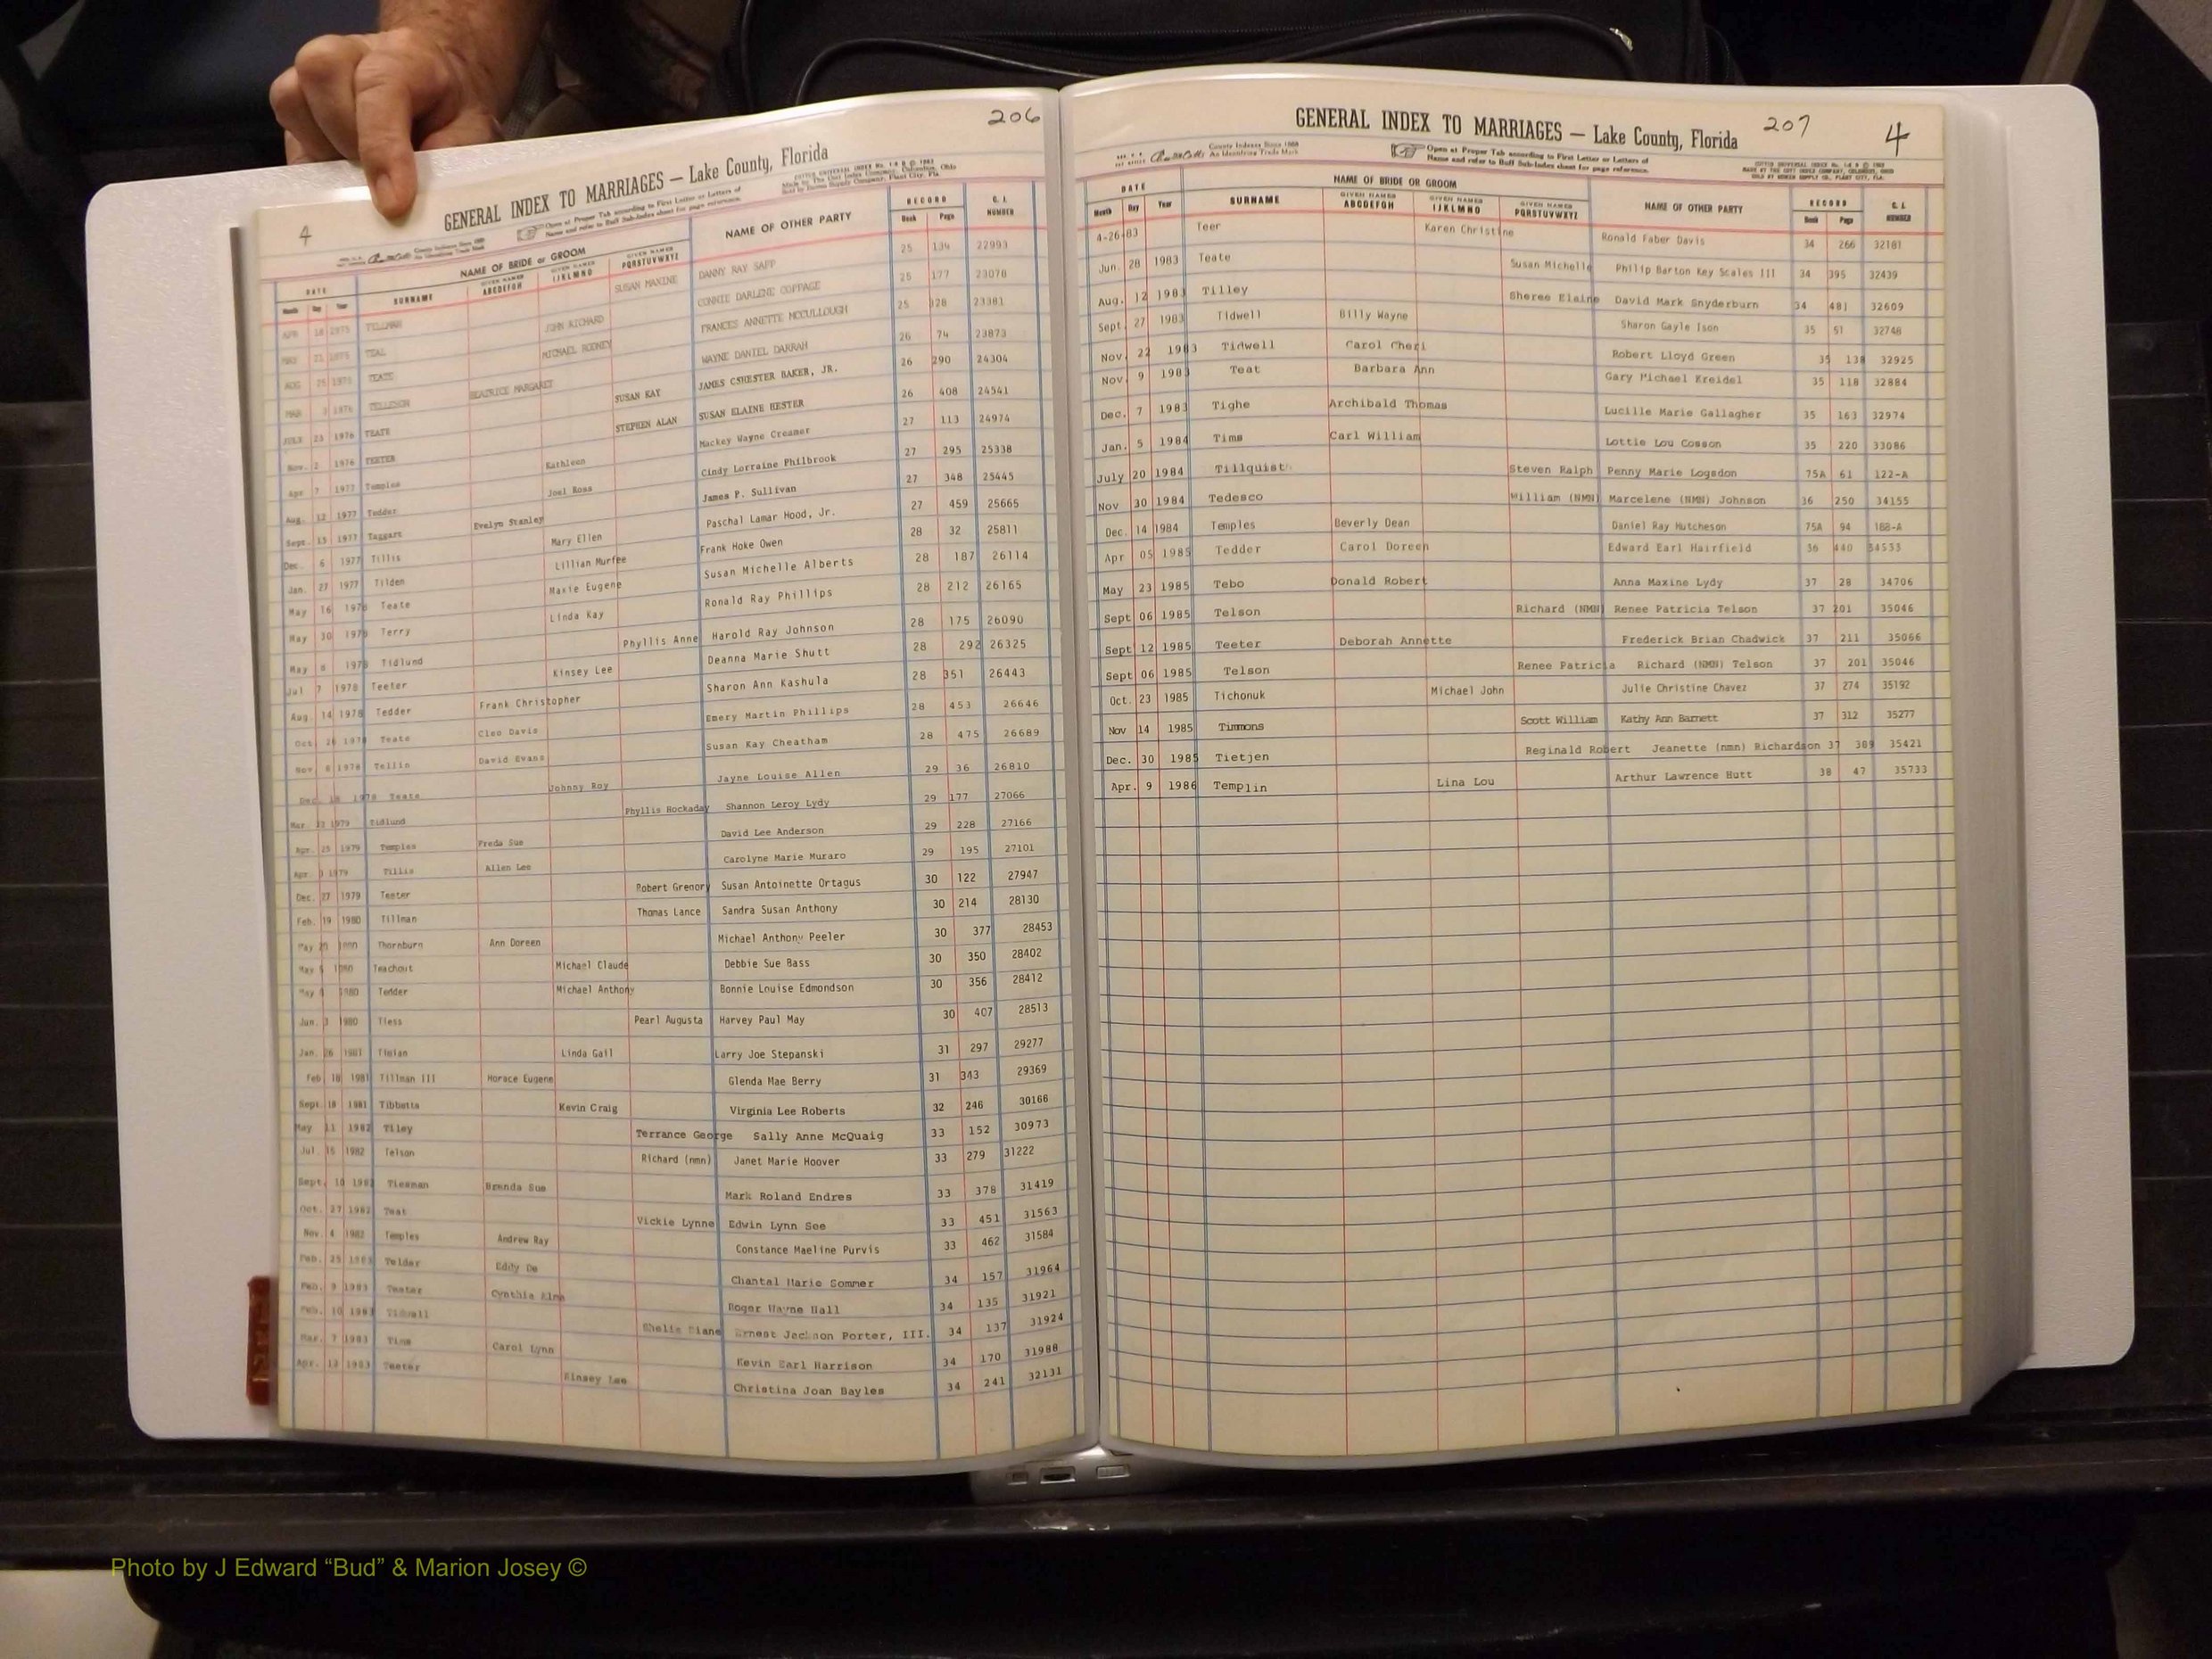 206
4
GENERAL INDEX TO MARRIAGES — Lake County, Florida
Open at Proper Tab according to First Letter or Letters of
Name and refer to Buff Sub-Index sheet for page reference.
DATE NAME OF BRIDE or GROOM NAME OF OTHER PARTY RECORD G. I. NUMBER
Month Day Year SURNAME GIVEN NAMES ABCDEFGH GIVEN NAMES IJKLMNO GIVEN NAMES PQRSTUVWXYZ Book Page
APR 18 1975 TILLMAN SUSAN MAXINE DANNY RAY SAPP 25 134 22993
MAY 23 1975 TEAL JOHN RICHARD CONNIE DARLENE COPPAGE 25 177 23078
AUG 25 1975 TEATE MICHAEL RODNEY FRANCES ANNETTE MCCULLOUGH 25 328 23381
MAR 3 1976 BEATRICE MARGARET WAYNE DANIEL DARRAH 26 74 23873
JULY 23 1976 TEATE SUSAN KAY JAMES CSHESTER BAKER, JR. 26 290 24304
Nov. 2 1976 TEETER STEPHEN ALAN SUSAN ELAINE HESTER 26 408 24541
Apr 7 1977 Temples Kathleen Mackey Wayne Creamer 27 113 24974
Aug. 12 1977 Tedder Joel Ross Cindy Lorraine Philbrook 27 295 25338
Sept. 15 1977 Taggart Evelyn Stanley James P. Sullivan 27 348 25445
Dec. 6 1977 Tillis Mary Ellen Paschal Lamar Hood, Jr. 27 459 25665
Jan. 27 1977 Tilden Lillian Murfee Frank Hoke Owen 28 32 25811
May 16 1978 Teate Maxie Eugene Susan Michelle Alberts 28 187 26114
May 30 1978 Terry Linda Kay Ronald Ray Phillips 28 212 26165
May 8 1978 Tidlund Phyllis Anne Harold Ray Johnson 28 175 26090
Jul 7 1978 Teeter Kinsey Lee Deanna Marie Shutt 28 292 26325
Aug. 14 1978 Tedder Frank Christopher Sharon Ann Kashula 28 351 26443
Oct 26 1978 Teate Cleo Davis Emery Martin Phillips 28 453 26646
Nov. 8 1978 Tellin David Evans Susan Kay Cheatham 28 475 26689
Dec. 18 1978 Teate Johnny Roy Jayne Louise Allen 29 36 26810
Mar. 22 1979 Tidlund Phyllis Hockaday Shannon Leroy Lydy 29 177 27066
Apr. 25 1979 Temples Freda Sue David Lee Anderson 29 228 27166
Apr. 3 1979 Tillis Allen Lee Carolyne Marie Muraro 29 195 27101
Dec. 27 1979 Teater Robert Gregory Susan Antoinette Ortagus 30 122 27947
Feb. 19 1980 Tillman Thomas Lance Sandra Susan Anthony 30 214 28130
May Thornburn Ann Doreen Michael Anthony Peeler 30 377 28453
May 1980 Teachout Michael Claude Debbie Sue Bass 30 350 28402
May 1980 Tedder Michael Anthony Bonnie Louise Edmondson 30 356 28412
Jun. 3 1980 Tless Pearl Augusta Harvey Paul May 30 407 28513
Jan. 26 1981 Linda Gail Larry Joe Stepanski 31 297 29277
Feb 18 1981 Tillman III Horace Eugene Glenda Mae Berry 31 343 29369
Sept. 18 1981 Tibbetts Kevin Craig Virginia Lee Roberts 32 246 30166
May 11 1982 Tiley Terrance George Sally Anne McQuaig 33 152 30973
Jul 16 1982 Telson Richard (nmn) Janet Marie Hoover 33 279 31222
Sept. 10 1982 Brenda Sue Mark Roland Endres 33 378 31419
Oct. 27 1982 Teat Vickie Lynne Edwin Lynn See 33 451 31563
Nov. 4 1982 Temples Andrew Ray Constance Maeline Purvis 33 462 31584
Feb. 25 1983 Telder Eddy De Chantal Marie Sommer 34 157 31964
Feb. 9 1983 Teater Cynthia Roger Wayne Hall 34 135 31921
Feb. 10 1983 Tidwell Shelie Diane Ernest Jackson Porter, III. 34 137 31924
Mar. 7 1983 Tims Carol Lynn Kevin Earl Harrison 34 170 31988
Apr. 12 1983 Teeter Kinsey Lee Christina Joan Bayles 34 241 32131
207
4
GENERAL INDEX TO MARRIAGES — Lake County, Florida
County Indexes Since 1888
An Identifying Trade Mark
Open at Proper Tab according to First Letter or Letters of
Name and refer to Buff Sub-Index sheet for page reference.
DATE NAME OF BRIDE OR GROOM NAME OF OTHER PARTY RECORD G. I. NUMBER
Month Day Year SURNAME GIVEN NAMES ABCDEFGH GIVEN NAMES IJKLMNO GIVEN NAMES PQRSTUVWXYZ Book Page
4-26-83 Teer Karen Christine Ronald Faber Davis 34 266 32181
Jun. 28 1983 Teate Susan Michelle Philip Barton Key Scales III 34 395 32439
Aug. 12 1983 Tilley Sheree Elaine David Mark Snyderburn 34 481 32609
Sept. 27 1983 Tidwell Billy Wayne Sharon Gayle Ison 35 51 32748
Nov. 22 1983 Tidwell Carol Cheri Robert Lloyd Green 35 138 32925
Nov. 9 1983 Teat Barbara Ann Gary Michael Kreidel 35 118 32884
Dec. 7 1983 Tighe Archibald Thomas Lucille Marie Gallagher 35 163 32974
Jan. 5 1984 Tims Carl William Lottie Lou Cosson 35 220 33086
July 20 1984 Tillquist Steven Ralph Penny Marie Logsdon 75A 61 122-A
Nov 30 1984 Tedesco William (NMN) Marcelene (NMN) Johnson 36 250 34155
Dec. 14 1984 Temples Beverly Dean Daniel Ray Hutcheson 75A 94 188-A
Apr 05 1985 Tedder Carol Doreen Edward Earl Hairfield 36 440 34533
May 23 1985 Tebo Donald Robert Anna Maxine Lydy 37 28 34706
Sept 06 1985 Telson Richard (NMN) Renee Patricia Telson 37 201 35046
Sept 12 1985 Teeter Deborah Annette Frederick Brian Chadwick 37 211 35066
Sept 06 1985 Telson Renee Patricia Richard (NMN) Telson 37 201 35046
Oct. 23 1985 Tichonuk Michael John Julie Christine Chavez 37 274 35192
Nov 14 1985 Timmons Scott William Kathy Ann Barnett 37 312 35277
Dec. 30 1985 Tietjen Reginald Robert Jeanette (nmn) Richardson 37 389 35421
Apr. 9 1986 Templin Lina Lou Arthur Lawrence Hutt 38 47 35733
Photo by J Edward “Bud” & Marion Josey ©